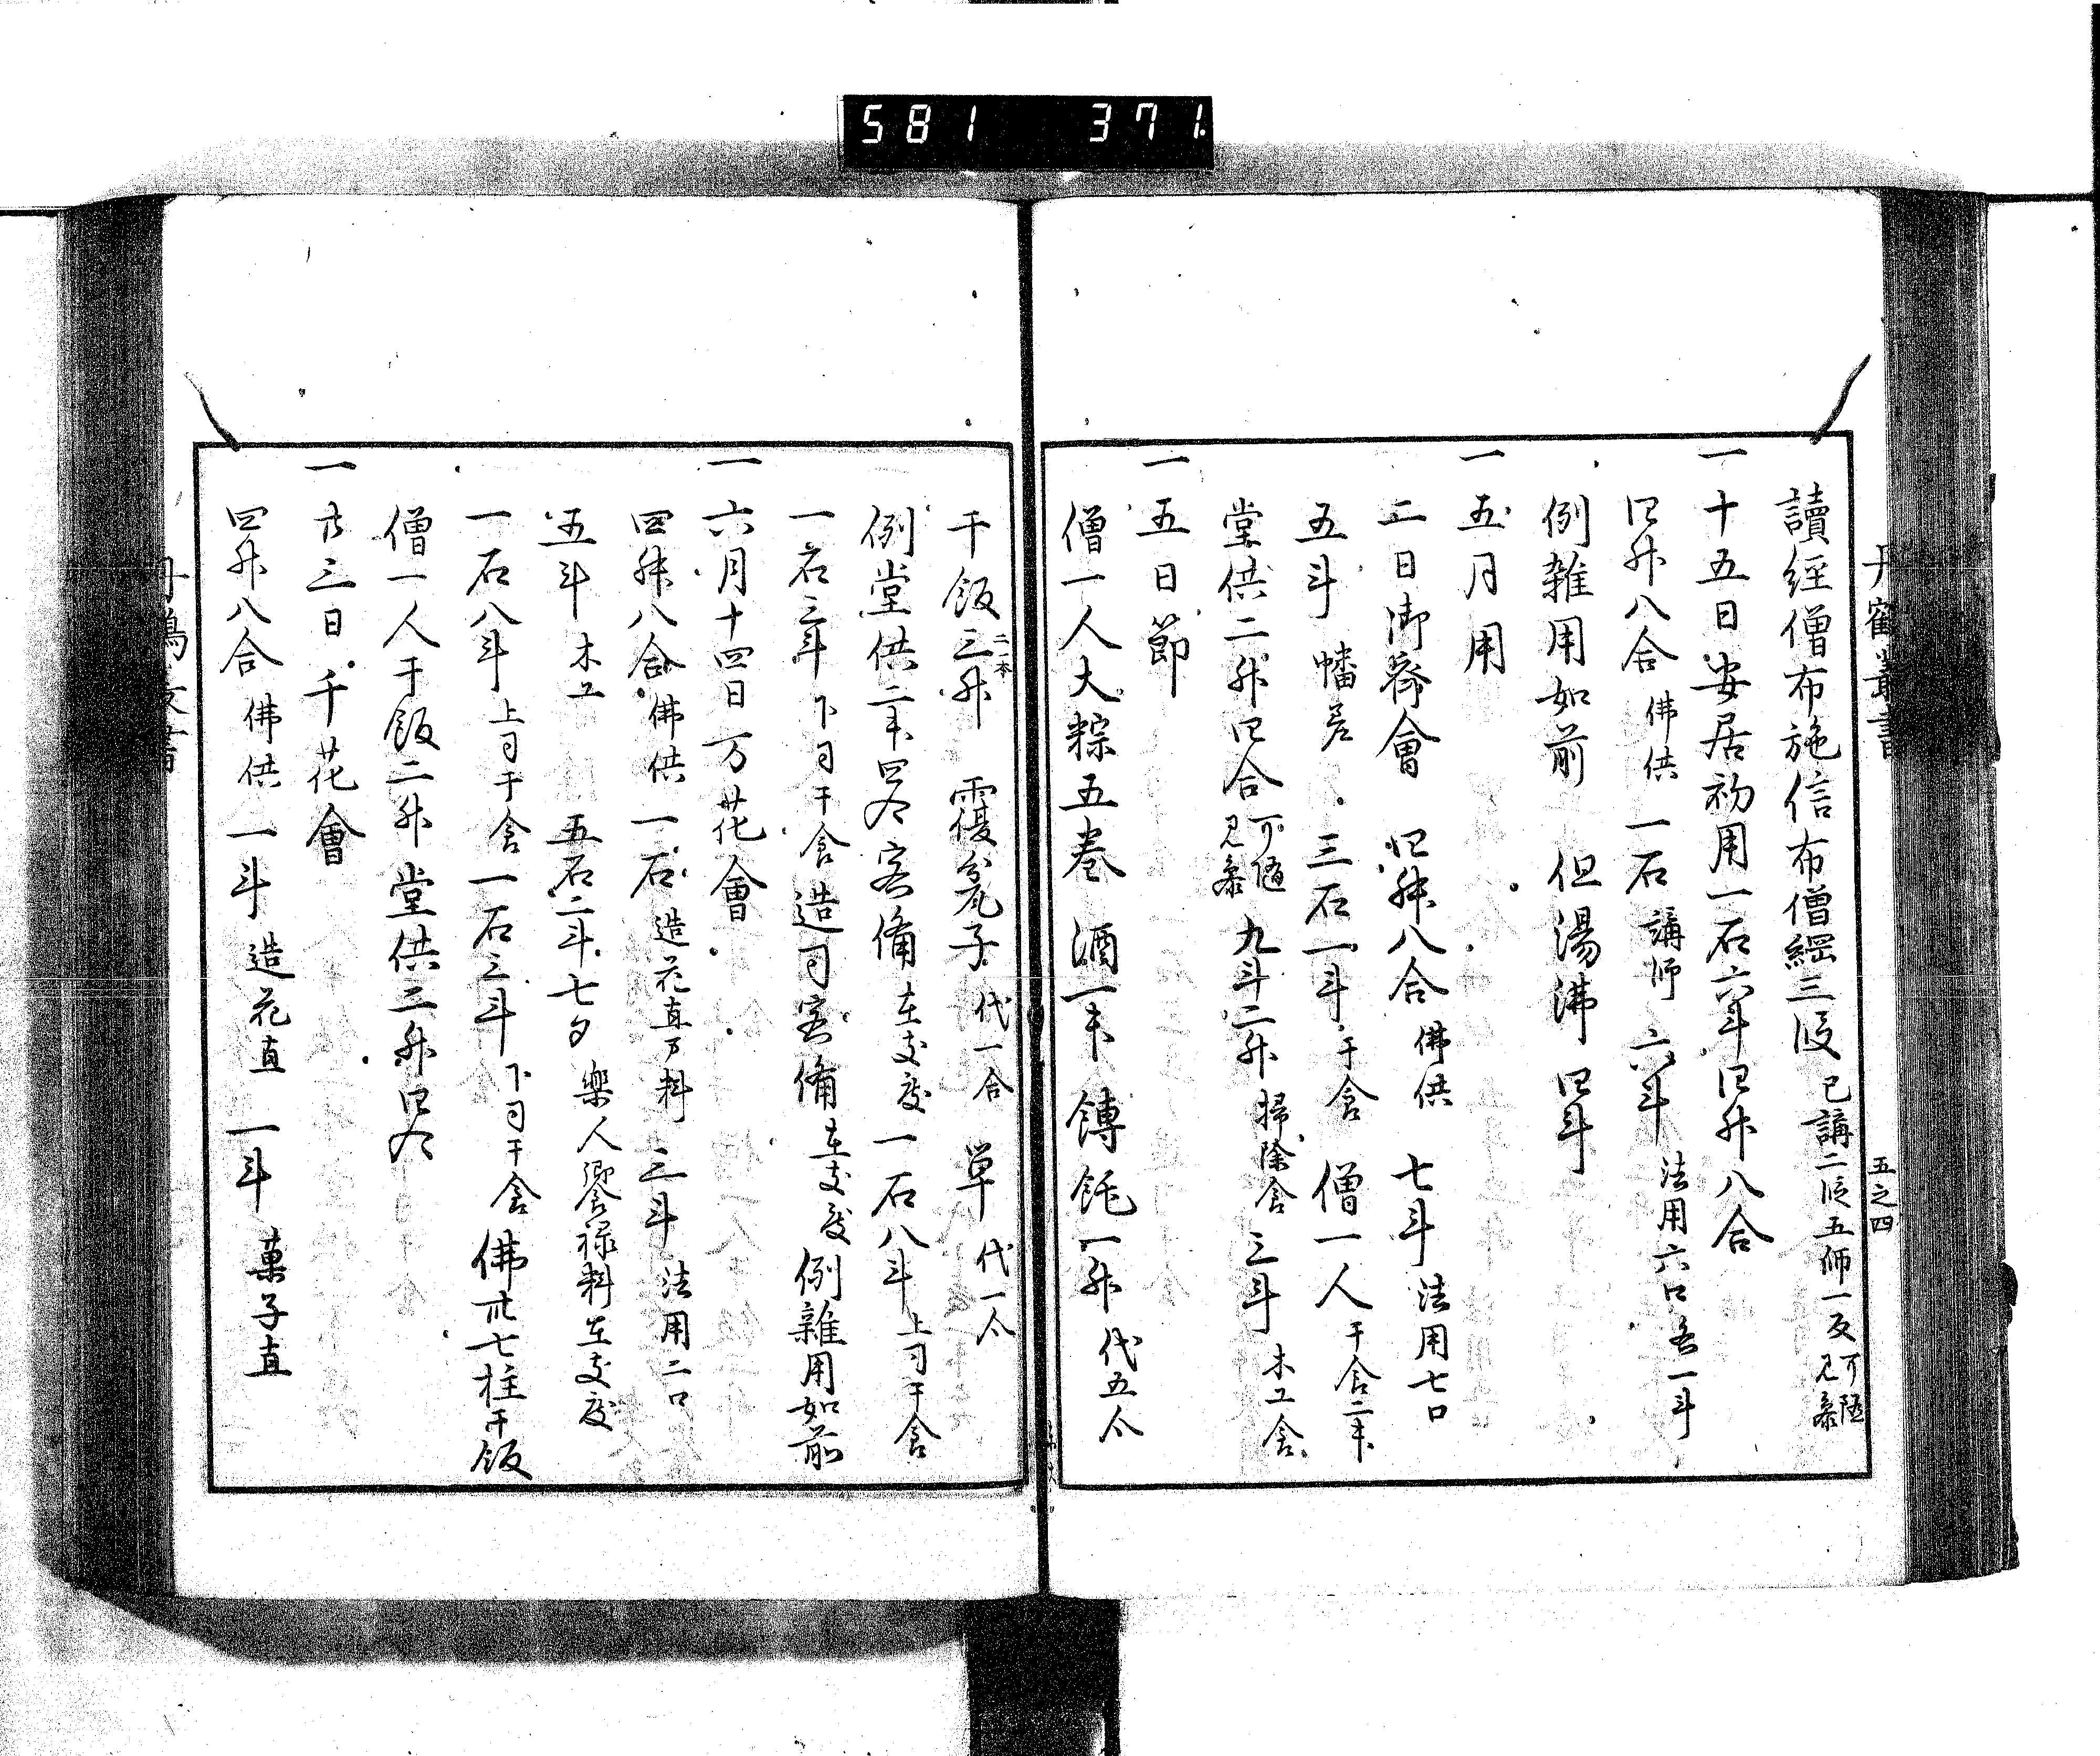 581 371
丹鶴叢書
五之四
讀經僧布施信布僧綱三段 已講二段五師一反 可隨見参
一十五日安居初用一石六斗四升八合
四升八合 佛供 一石 講師 六斗 法用六口各一斗
例雑用如前 但湯沸四斗
一五月用
二日御齋會 四升八合 佛供 七斗 法用七口
五斗 幡差 三石一斗 干食 僧一人 干食二本
堂供二升四合 可隨見参 九斗二升 掃除食 三斗 木工食
一五日節
僧一人大粽五巻 酒一本 餺飥一升 代五合
干飯三升 覆瓫子 代一合 草 代一合
例堂供 客備 在支度 一石八斗 上司干食
一石三斗 下司干食 造司客備 在支度 例雜用如前
一六月十四日万花會
四升八合 佛供 一石 造花直万料 三斗 法用二口
五斗 木工 五石二斗七夕 樂人饗祿料在支度
一石八斗 上司干食 一石三斗 下司干食 佛卅七柱干飯
僧一人干飯二升 堂供三升四合
一廿三日千花會
四升八合 佛供 一斗 造花直 一斗 菓子直